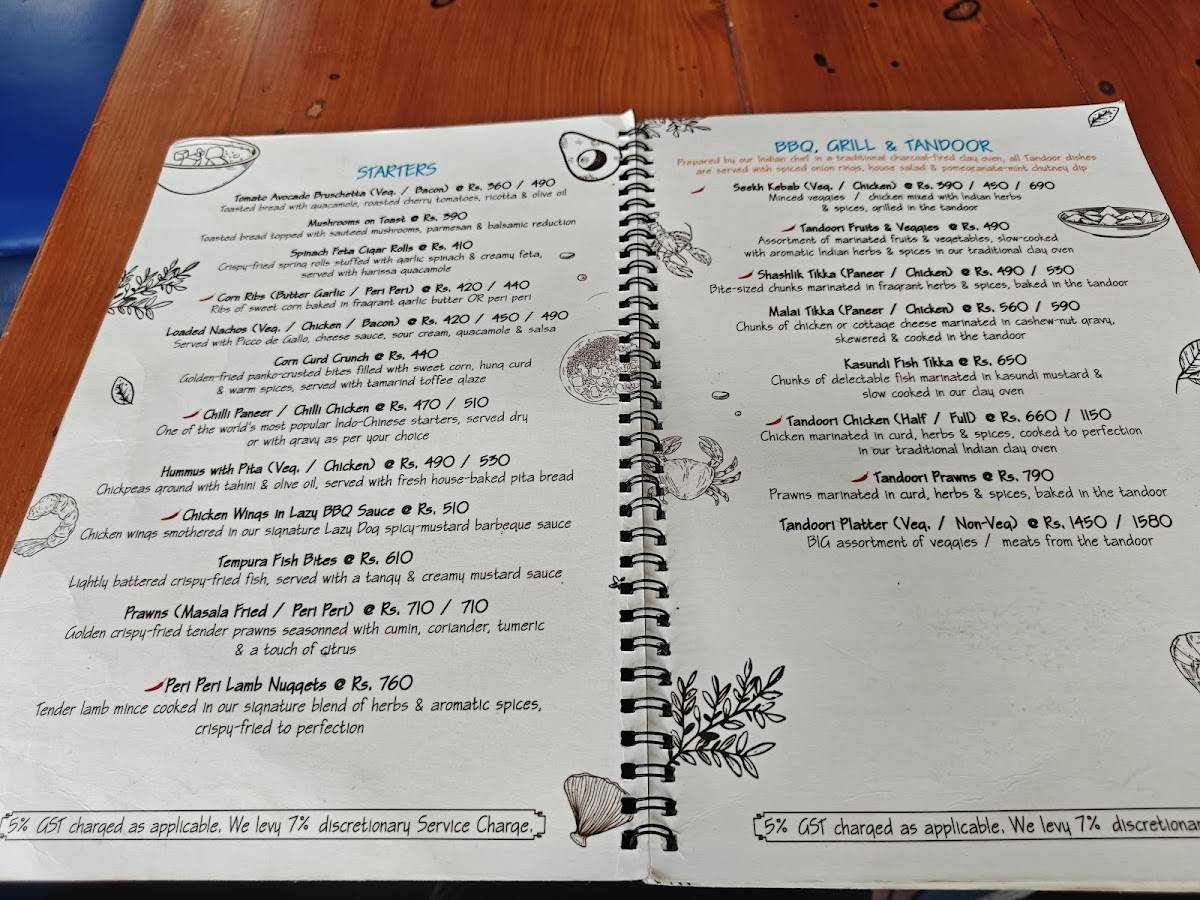 STARTERS
Tomato Avocado Bruschetta (Veg. / Bacon) @ Rs. 360 / 490
Toasted bread with guacamole, roasted cherry tomatoes, ricotta & olive oil
Mushrooms on Toast @ Rs. 390
Toasted bread topped with sauteed mushrooms, parmesan & balsamic reduction
Spinach Feta Cigar Rolls @ Rs. 410
Crispy-fried spring rolls stuffed with garlic spinach & creamy feta,
served with harissa guacamole
Corn Ribs (Butter Garlic / Peri Peri) @ Rs. 420 / 440
Ribs of sweet corn baked in fragrant garlic butter OR peri peri
Loaded Nachos (Veg. / Chicken / Bacon) @ Rs. 420 / 450 / 490
Served with Picco de Gallo, cheese sauce, sour cream, guacamole & salsa
Corn Curd Crunch @ Rs. 440
Golden-fried panko-crusted bites filled with sweet corn, hung curd
& warm spices, served with tamarind toffee glaze
Chilli Paneer / Chilli Chicken @ Rs. 470 / 510
One of the world's most popular Indo-Chinese starters, served dry
or with gravy as per your choice
Hummus with Pita (Veg. / Chicken) @ Rs. 490 / 530
Chickpeas ground with tahini & olive oil, served with fresh house-baked pita bread
Chicken Wings in Lazy BBQ Sauce @ Rs. 510
Chicken wings smothered in our signature Lazy Dog spicy-mustard barbeque sauce
Tempura Fish Bites @ Rs. 610
Lightly battered crispy-fried fish, served with a tangy & creamy mustard sauce
Prawns (Masala Fried / Peri Peri) @ Rs. 710 / 710
Golden crispy-fried tender prawns seasonned with cumin, coriander, tumeric
& a touch of citrus
Peri Peri Lamb Nuggets @ Rs. 760
Tender lamb mince cooked in our signature blend of herbs & aromatic spices,
crispy-fried to perfection
5% GST charged as applicable. We levy 7% discretionary Service Charge.
BBQ, GRILL & TANDOOR
Prepared by our Indian chef in a traditional charcoal-fired clay oven, all Tandoor dishes
are served with spiced onion rings, house salad & pomegranate-mint chutney dip
Seekh Kebab (Veg. / Chicken) @ Rs. 390 / 450 / 690
Minced veggies / chicken mixed with Indian herbs
& spices, grilled in the tandoor
Tandoori Fruits & Veggies @ Rs. 490
Assortment of marinated fruits & vegetables, slow-cooked
with aromatic Indian herbs & spices in our traditional clay oven
Shashlik Tikka (Paneer / Chicken) @ Rs. 490 / 530
Bite-sized chunks marinated in fragrant herbs & spices, baked in the tandoor
Malai Tikka (Paneer / Chicken) @ Rs. 560 / 590
Chunks of chicken or cottage cheese marinated in cashew-nut gravy,
skewered & cooked in the tandoor
Kasundi Fish Tikka @ Rs. 650
Chunks of delectable fish marinated in kasundi mustard &
slow cooked in our clay oven
Tandoori Chicken (Half / Full) @ Rs. 660 / 1150
Chicken marinated in curd, herbs & spices, cooked to perfection
in our traditional Indian clay oven
Tandoori Prawns @ Rs. 790
Prawns marinated in curd, herbs & spices, baked in the tandoor
Tandoori Platter (Veg. / Non-Veg) @ Rs. 1450 / 1580
BIG assortment of veggies / meats from the tandoor
5% GST charged as applicable. We levy 7% discretionar